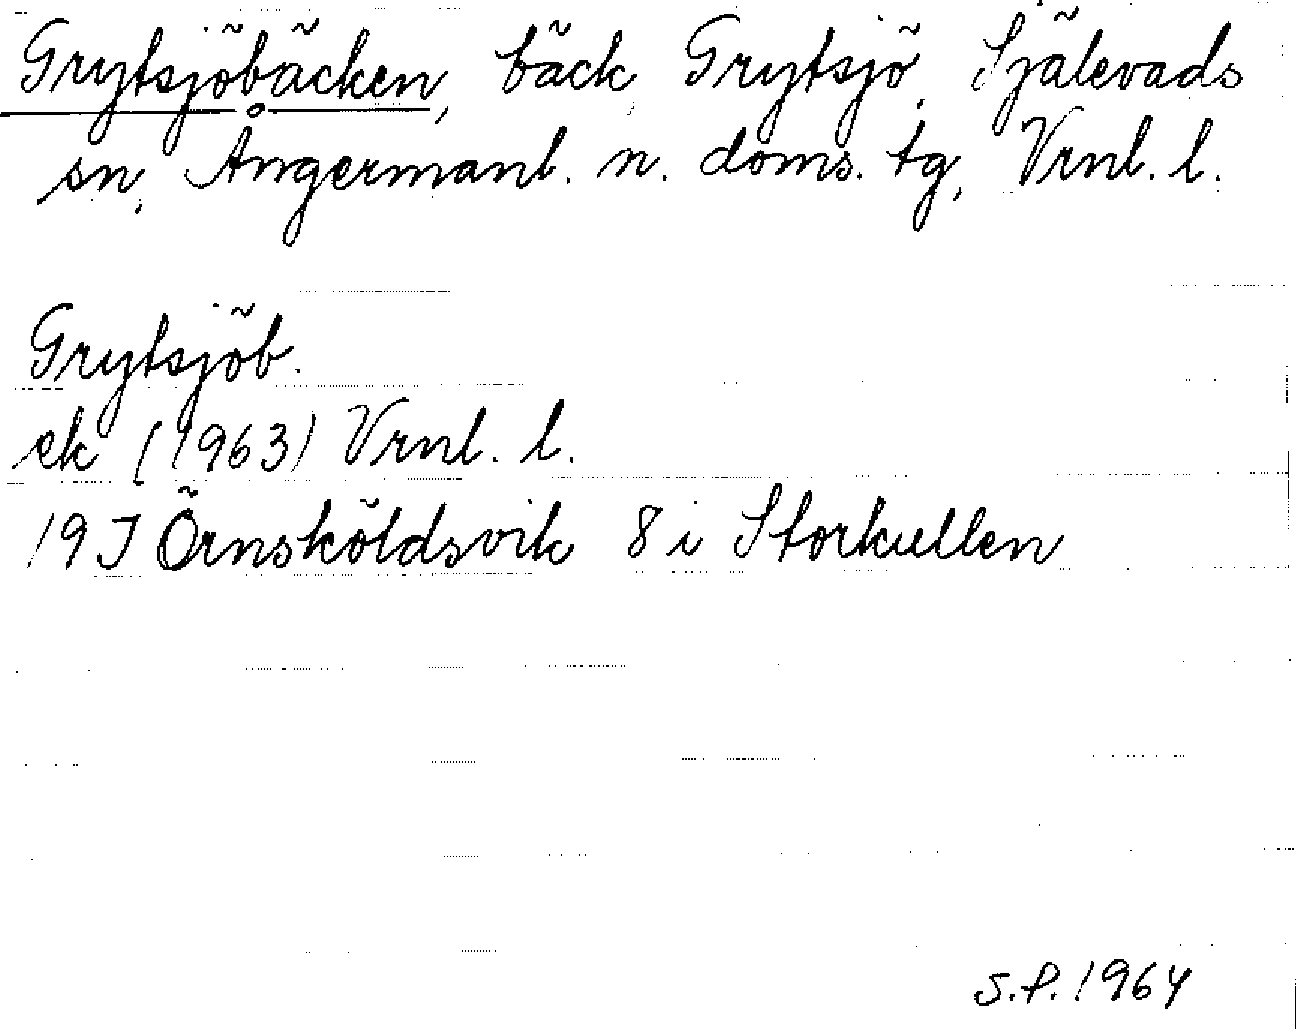 Grytsjöbäcken, bäck, Grytsjö, Själevads
sn, Ångermanl. n. doms. tg, Vrnl. l.
Grytsjöb.
ek (1963) Vrnl. l.
19J Örnsköldsvik 8 i Storkullen
S.P. 1964